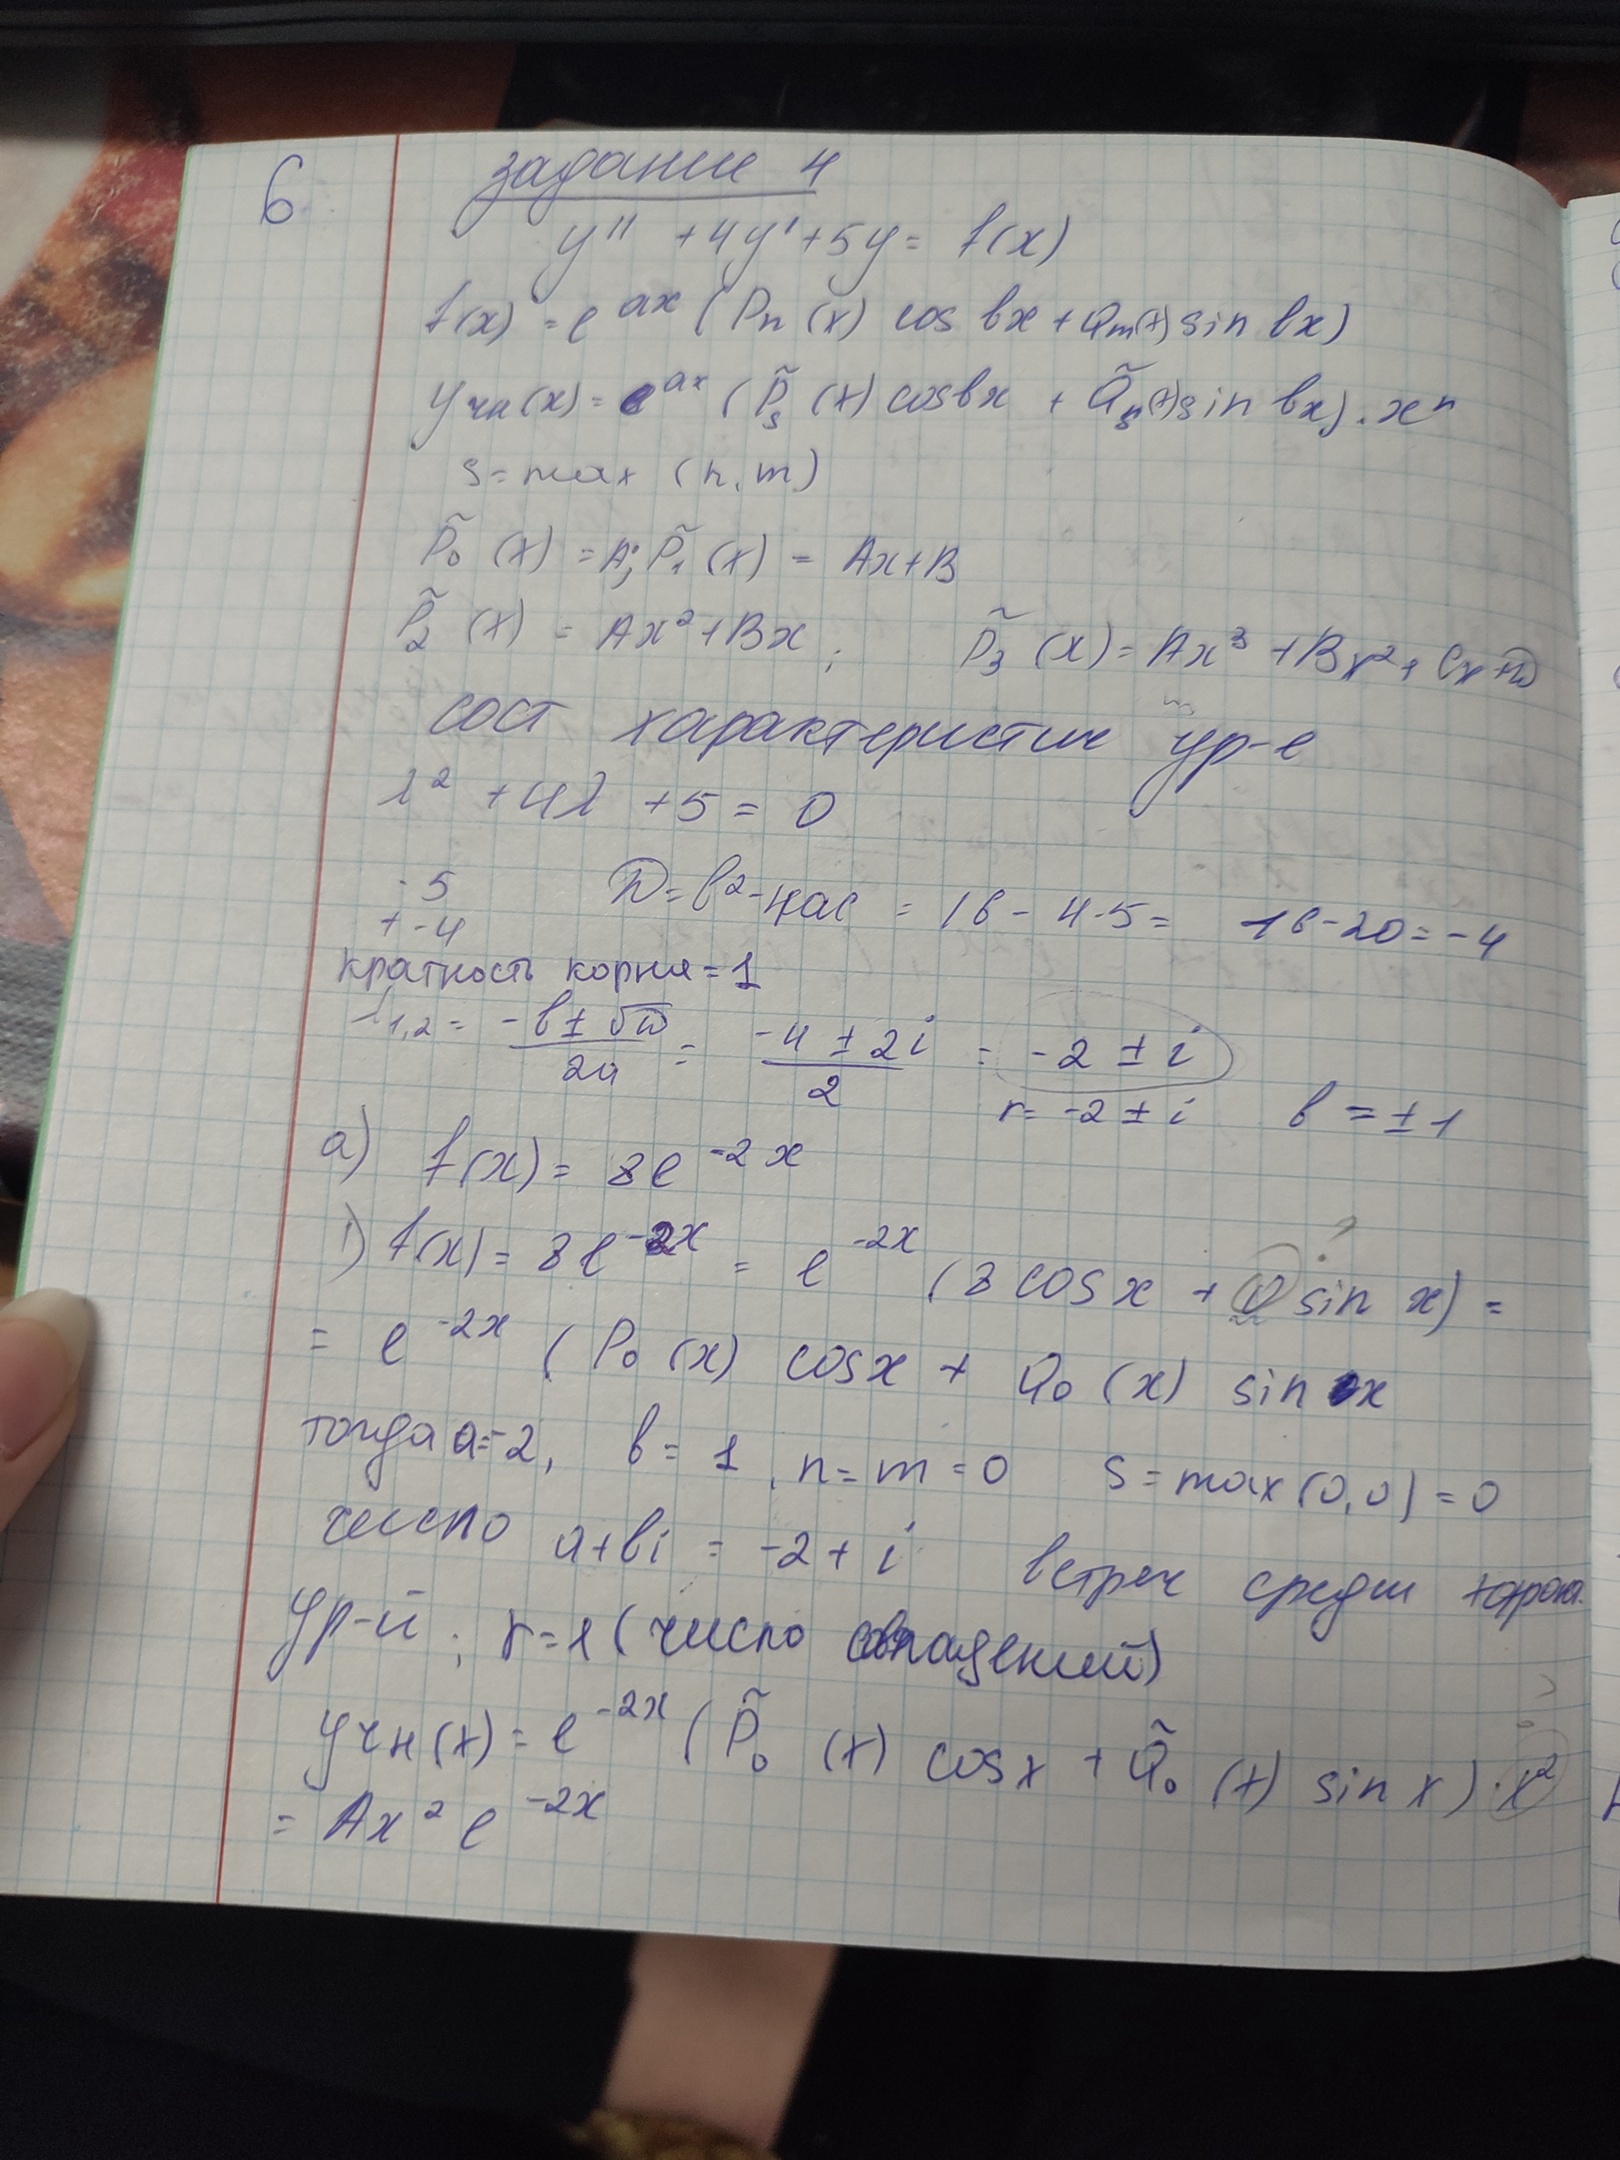 6
задание 4
y'' + 4y' + 5y = f(x)
f(x) = e^ax (Pn (x) cos bx + Qm(x) sin bx)
yчн(x) = e^ax (P̃s (x) cos bx + Q̃s(x) sin bx) · x^n
s = max (n, m)
P̃0 (x) = A; P̃1 (x) = Ax+B
P̃2 (x) = Ax² + Bx ; P̃3 (x) = Ax³ + Bx² + Cx + D
сост характеристич ур-е
λ² + 4λ + 5 = 0
-5 D = b² - 4ac = 16 - 4·5 = 16 - 20 = -4
+ -4
кратность корня = 1
λ1,2 = (-b ± √D)/2a = (-4 ± 2i)/2 = -2 ± i
r = -2 ± i b = ±1
а) f(x) = 8e^-2x
1) f(x) = 8e^-2x = e^-2x (8 cos x + 0 sin x) = ?
= e^-2x (P0 (x) cos x + Q0 (x) sin x
тогда a=-2, b = 1, n = m = 0 s = max (0,0) = 0
число a+bi = -2 + i встреч среди
ур-й; r=1 (число совпадений)
yчн(x) = e^-2x (P̃0 (x) cos x + Q̃0 (x) sin x) · x² ?
= Ax² e^-2x